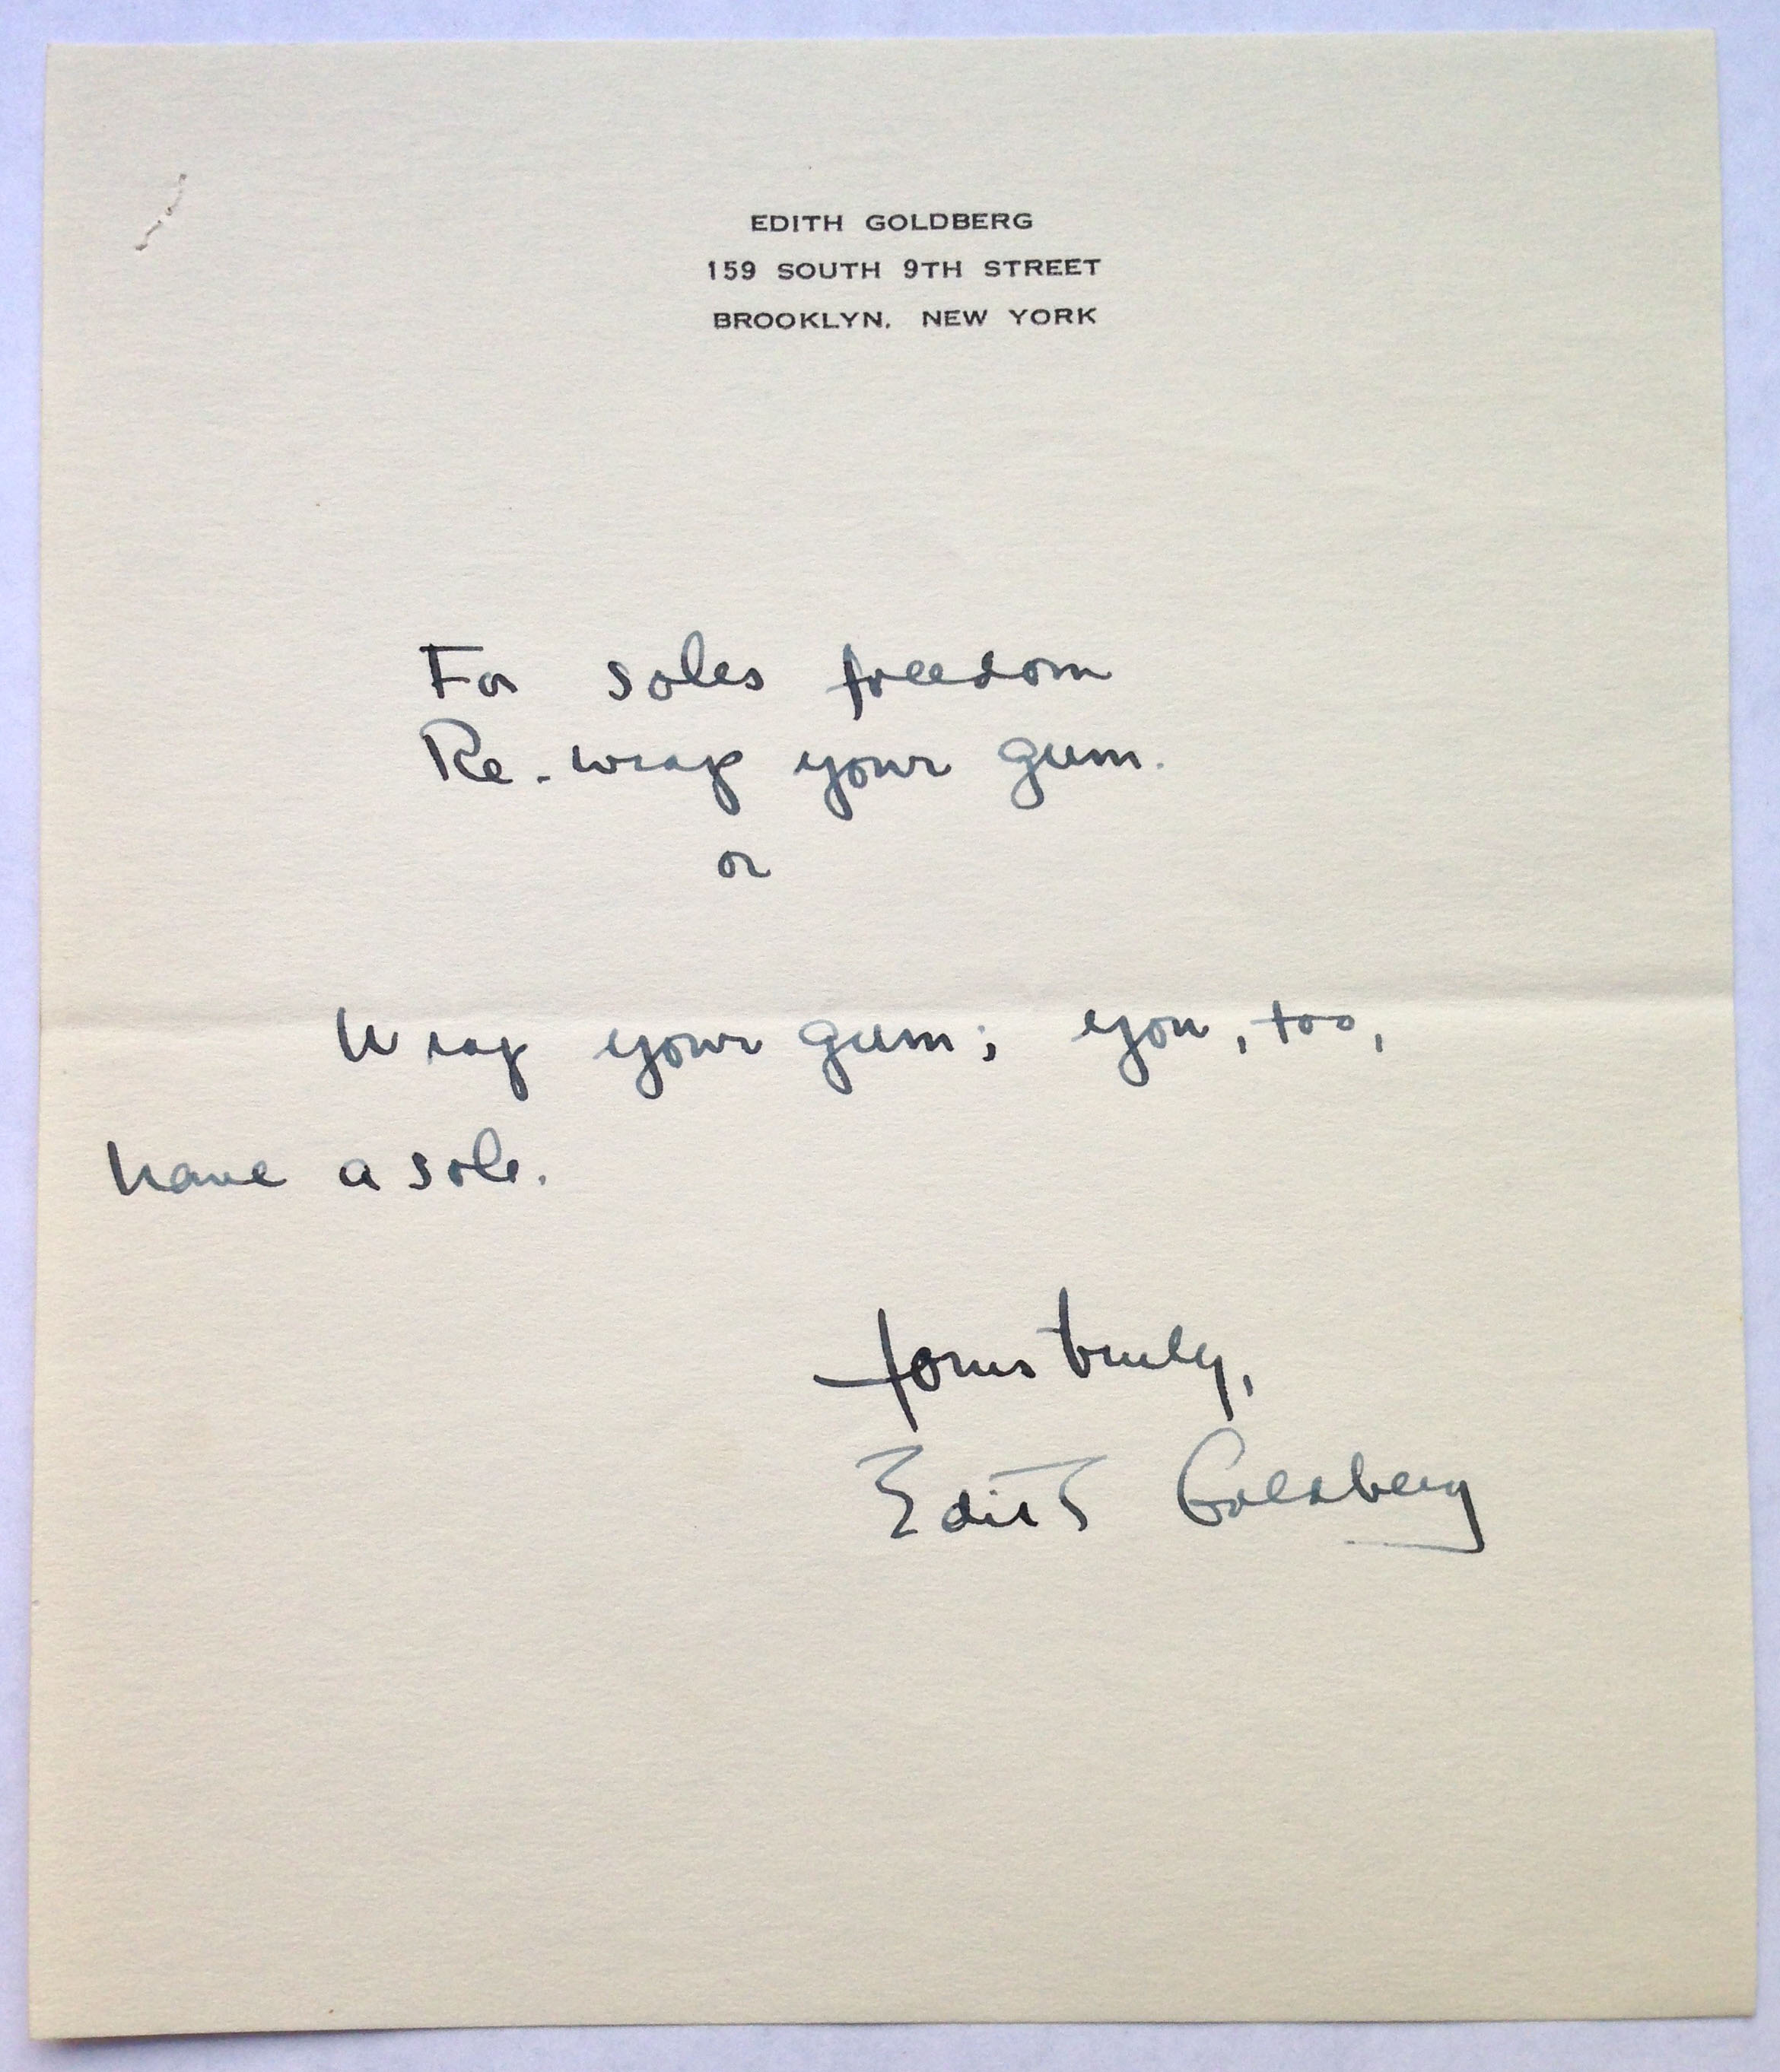 EDITH GOLDBERG
159 SOUTH 9TH STREET
BROOKLYN, NEW YORK
For soles freedom
Re-wrap your gum.
or
Wrap your gum; you, too,
have a sole.
Yours truly,
Edith Goldberg